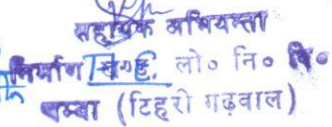 सहायक अभियन्ता
निर्माण खण्ड, लो० नि० वि०
चम्बा (टिहरी गढ़वाल)